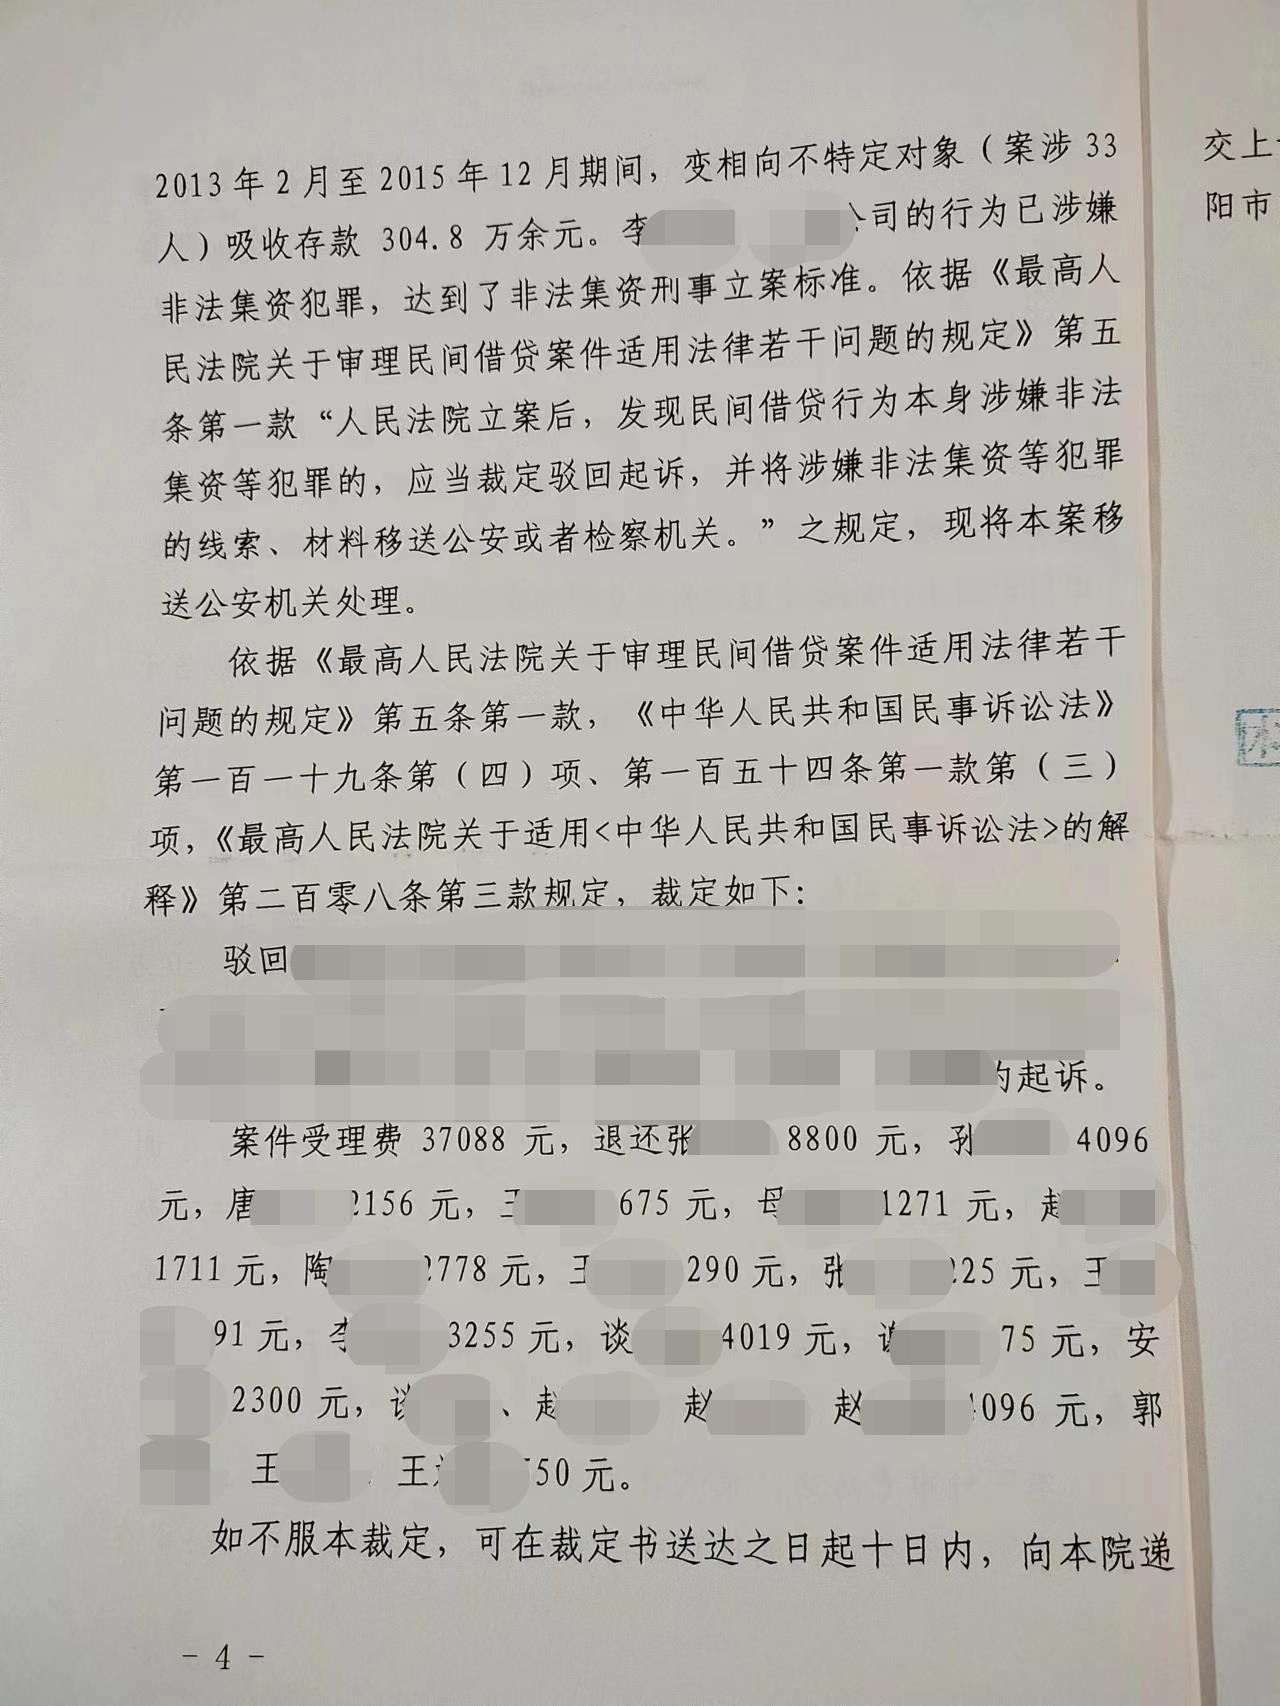 2013年2月至2015年12月期间，变相向不特定对象（案涉33
人）吸收存款 304.8 万余元。李 公司的行为已涉嫌
非法集资犯罪，达到了非法集资刑事立案标准。依据《最高人
民法院关于审理民间借贷案件适用法律若干问题的规定》第五
条第一款“人民法院立案后，发现民间借贷行为本身涉嫌非法
集资等犯罪的，应当裁定驳回起诉，并将涉嫌非法集资等犯罪
的线索、材料移送公安或者检察机关。”之规定，现将本案移
送公安机关处理。
依据《最高人民法院关于审理民间借贷案件适用法律若干
问题的规定》第五条第一款，《中华人民共和国民事诉讼法》
第一百一十九条第（四）项、第一百五十四条第一款第（三）
项，《最高人民法院关于适用<中华人民共和国民事诉讼法>的解
释》第二百零八条第三款规定，裁定如下：
驳回
的起诉。
案件受理费 37088 元，退还张 8800 元，孙 4096
元，唐 2156 元，王 675 元，母 1271 元，赵
1711 元，陶 2778 元，王 290 元，张 225 元，王
91 元，李 3255 元，谈 4019 元，谢 75 元，安
2300 元，谈 、赵 赵 赵 4096 元，郭
王 、王 50 元。
如不服本裁定，可在裁定书送达之日起十日内，向本院递
- 4 -
交上
阳市
本